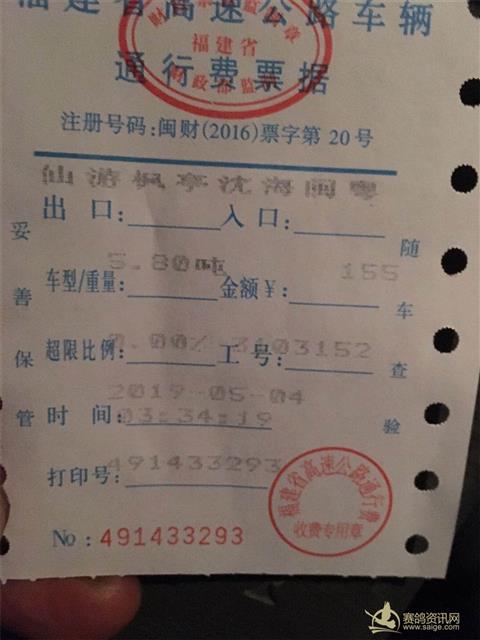 福建省高速公路车辆
福建省
通行费票据
注册号码:闽财(2016)票字第 20 号
仙游枫亭沈海闽粤
出 口: 入 口:
5.80吨 155
车型/重量: 金额¥:
0.00% 3103152
超限比例: 工 号:
2019-05-04
时 间: 03:34:19
打印号: 491433293
No : 491433293
妥善保管
随车查验
福建省高速公路通行费
收费专用章
赛鸽资讯网
www.saige.com